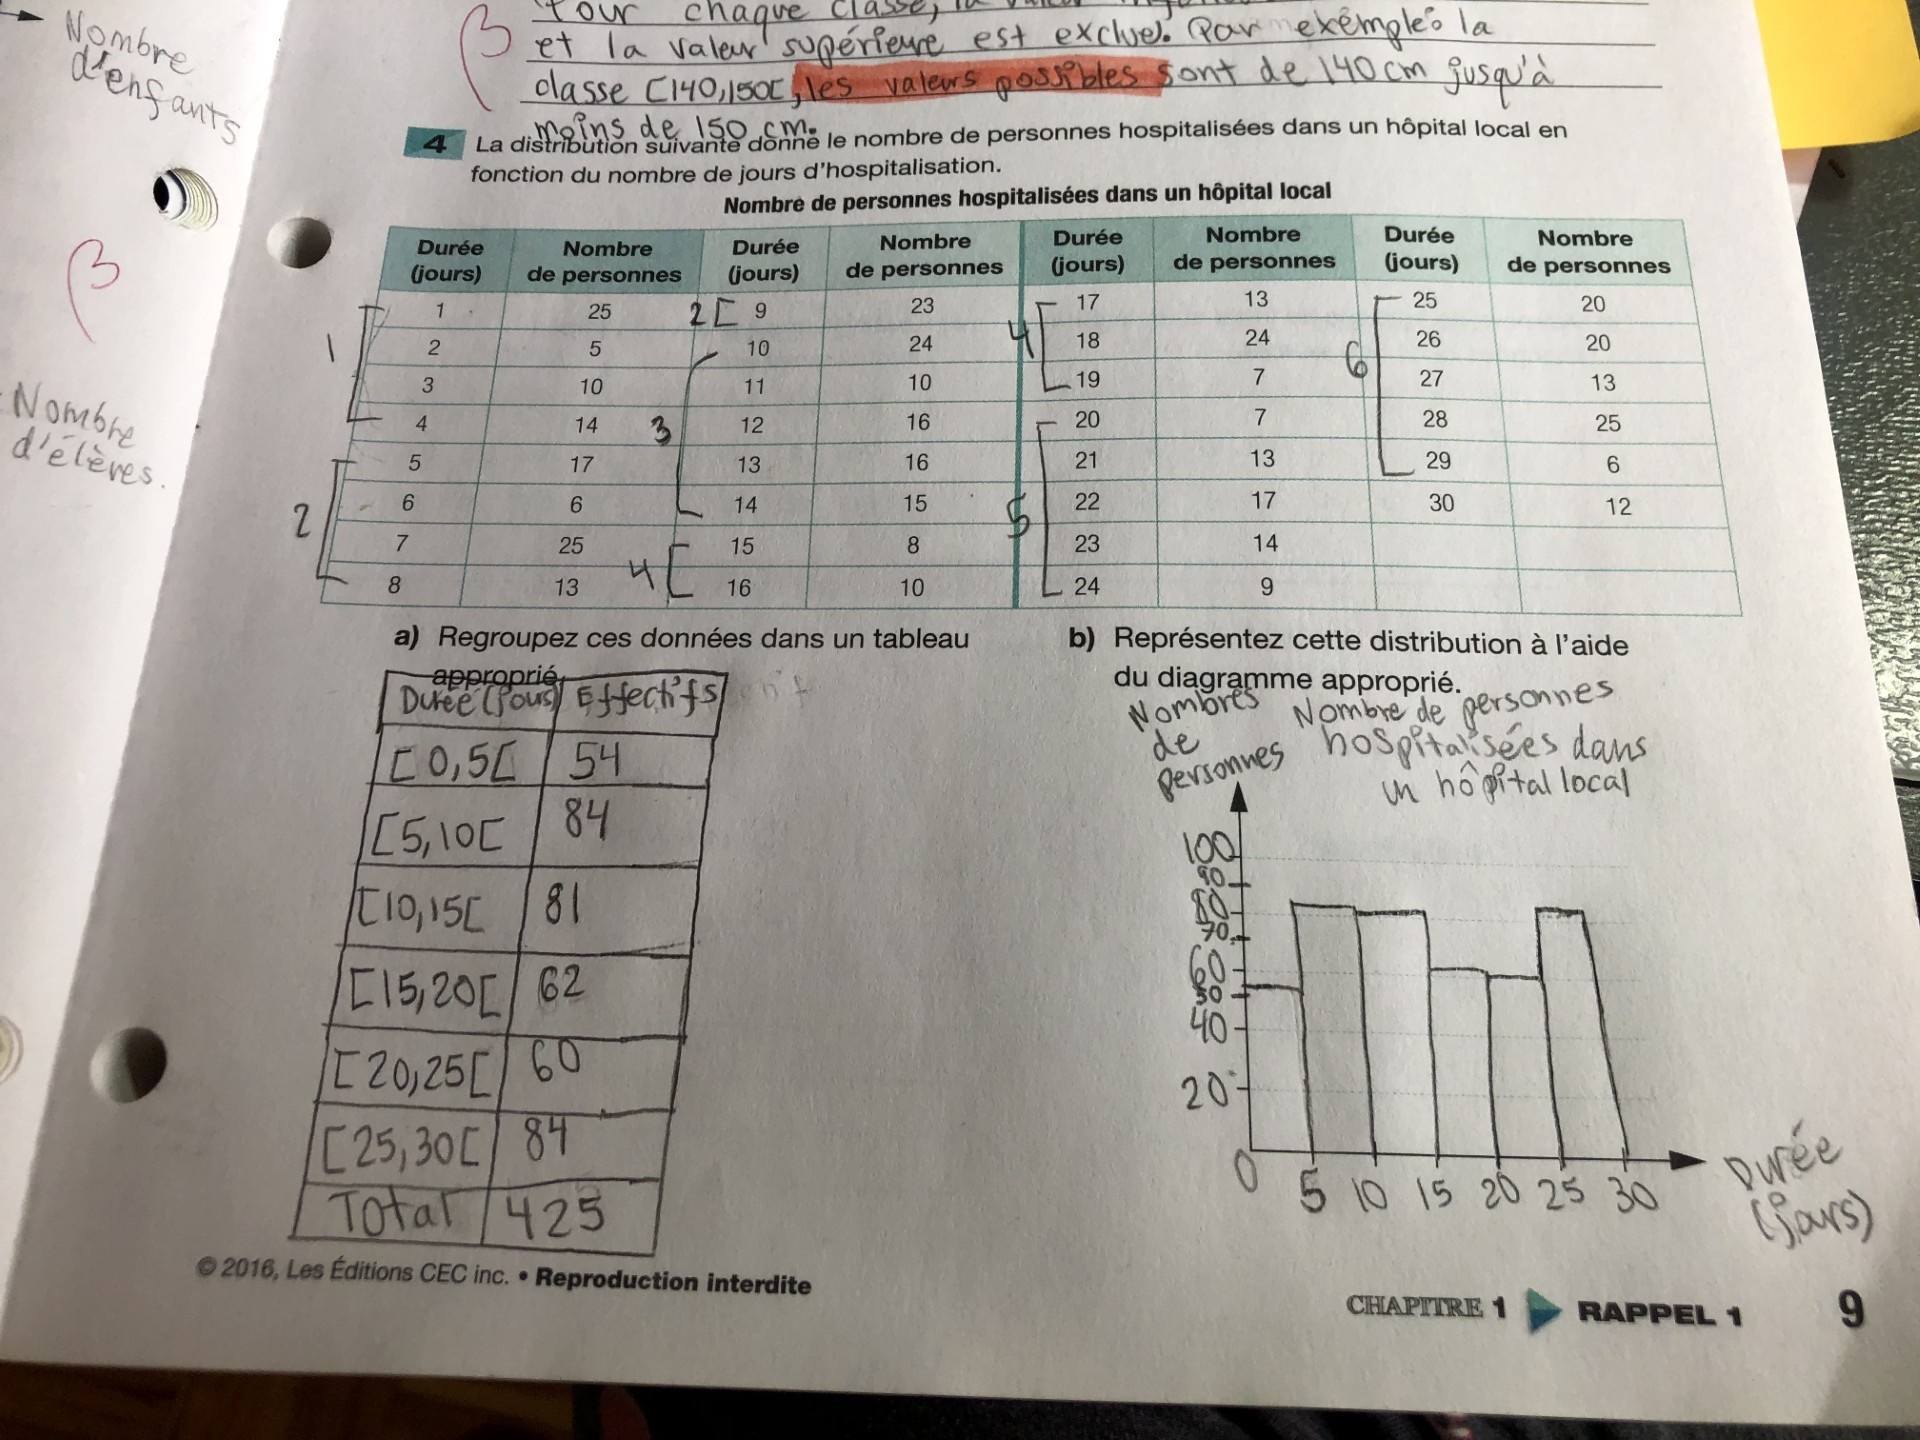 Nombre
d'enfants
β
Nombre
d'élèves.
β
Pour chaque classe, la valeur
et la valeur supérieure est exclue). Par exemple: la
classe [140,150[, les valeurs possibles sont de 140 cm jusqu'à
moins de 150 cm.
4 La distribution suivante donne le nombre de personnes hospitalisées dans un hôpital local en
fonction du nombre de jours d'hospitalisation.
Nombre de personnes hospitalisées dans un hôpital local
Durée (jours) Nombre de personnes Durée (jours) Nombre de personnes Durée (jours) Nombre de personnes Durée (jours) Nombre de personnes
1 25 2[ 9 23 17 13 25 20
1 2 5 10 24 4 18 24 26 20
3 10 11 10 19 7 6 27 13
4 14 3 12 16 20 7 28 25
5 17 13 16 21 13 29 6
2 6 6 14 15 5 22 17 30 12
7 25 15 8 23 14
8 13 4[ 16 10 24 9
a) Regroupez ces données dans un tableau
approprié.
Durée (jours) Effectifs
[0,5[ 54
[5,10[ 84
[10,15[ 81
[15,20[ 62
[20,25[ 60
[25,30[ 84
Total 425
b) Représentez cette distribution à l'aide
du diagramme approprié.
Nombres
de
personnes
Nombre de personnes
hospitalisées dans
un hôpital local
100
90
80
70
60
50
40
20
0 5 10 15 20 25 30
Durée
(jours)
© 2016, Les Éditions CEC inc. • Reproduction interdite
CHAPITRE 1 RAPPEL 1 9